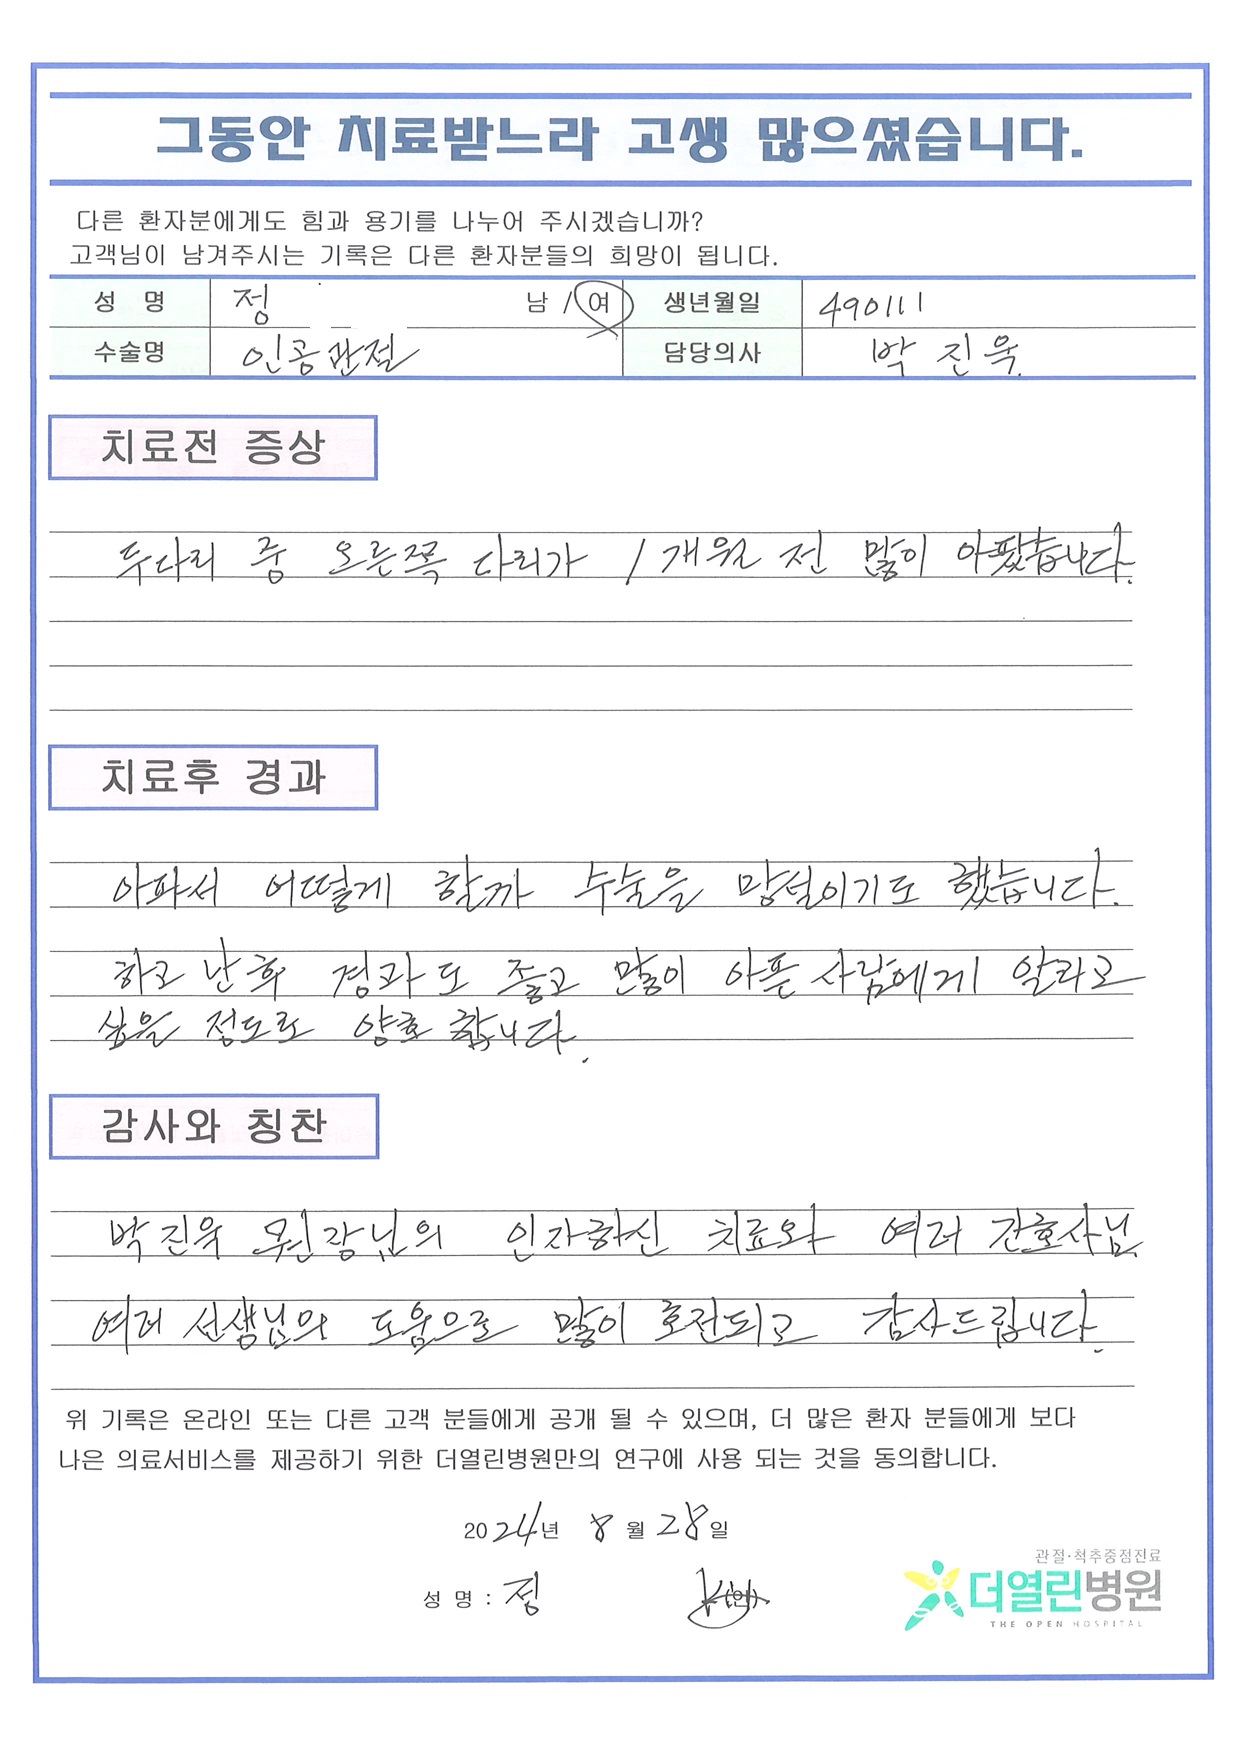 그동안 치료받느라 고생 많으셨습니다.
다른 환자분에게도 힘과 용기를 나누어 주시겠습니까?
고객님이 남겨주시는 기록은 다른 환자분들의 희망이 됩니다.
성 명 정 남 / 여 생년월일 490111
수술명 인공관절 담당의사 박진욱
치료전 증상
두다리 중 오른쪽 다리가 1개월 전 많이 아팠습니다.
치료후 경과
아파서 어떻게 할까 수술을 망설이기도 했습니다.
하고 난 후 경과도 좋고 많이 아픈 사람에게 알리고
싶을 정도로 양호합니다.
감사와 칭찬
박진욱 원장님의 인자하신 치료와 여러 간호사님
여러 선생님의 도움으로 많이 호전되고 감사드립니다.
위 기록은 온라인 또는 다른 고객 분들에게 공개 될 수 있으며, 더 많은 환자 분들에게 보다
나은 의료서비스를 제공하기 위한 더열린병원만의 연구에 사용 되는 것을 동의합니다.
2024년 8월 28일
관절·척추중점진료
성 명 : 정 (인)
더열린병원
THE OPEN HOSPITAL